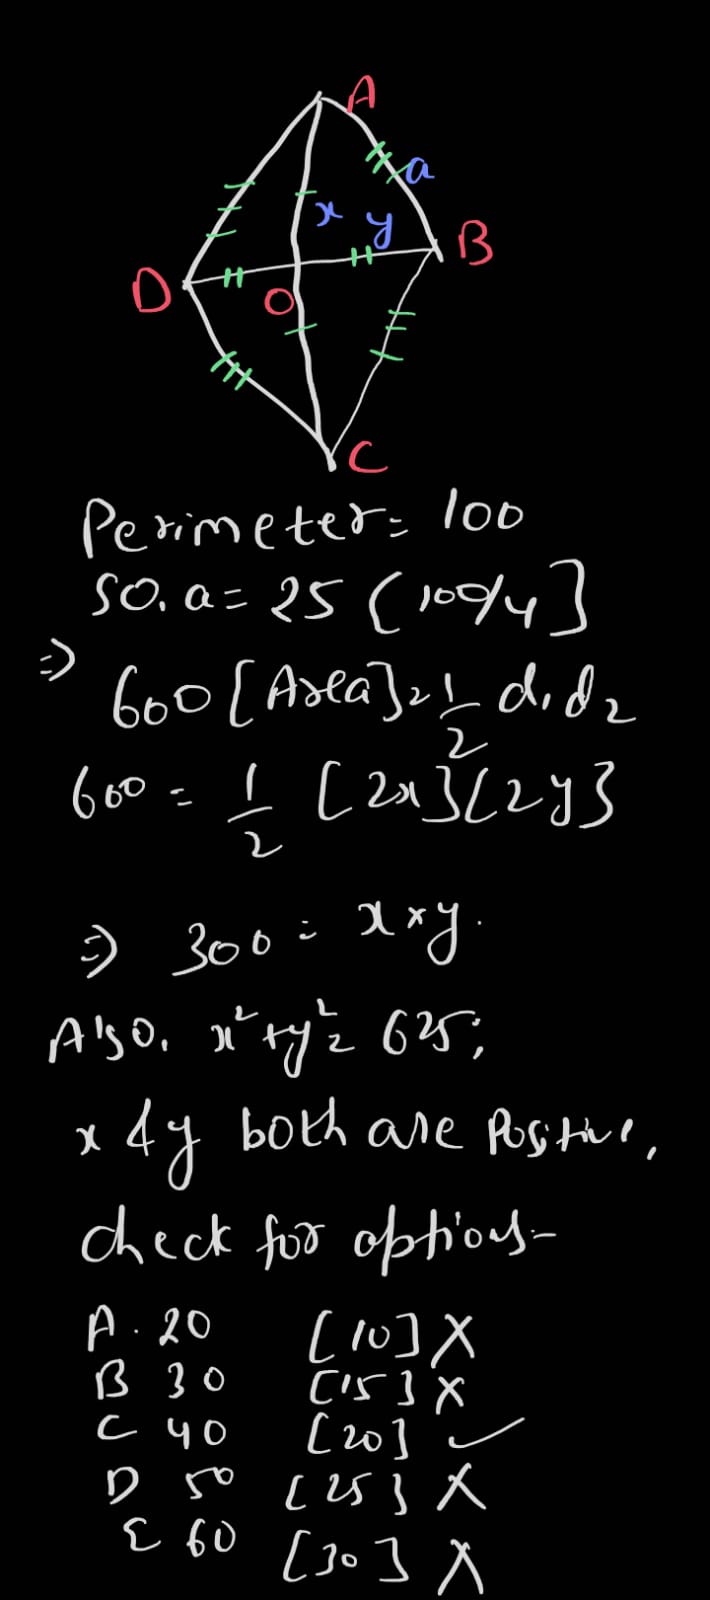 A
a
x y
B
D
O
C
Perimeter = 100
SO, a = 25 [100/4]
⇒ 600 [Area] = 1/2 d1 d2
600 = 1/2 [2x][2y]
⇒ 300 = x × y.
Also, x² + y² = 625;
x & y both are Positive,
check for options-
A. 20 [10] X
B 30 [15] X
C 40 [20] ✓
D 50 [25] X
E 60 [30] X